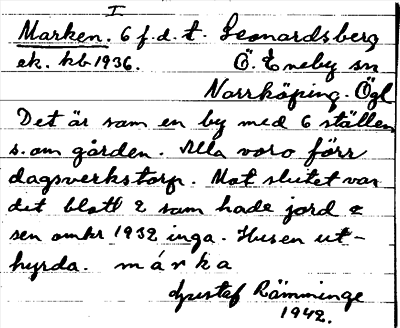 I
Marken. 6 f.d.t. Leonardsberg
ek. kb 1936. Ö. Eneby sn
Norrköping. Ögl
Det är som en by med 6 ställen
s. om gården. Alla voro förr
dagsverkstorp. Mot slutet var
det blott 2 som hade jord &
sen omkr 1932 inga. Husen ut-
hyrda. márka
Gustaf Rämminge
1942.